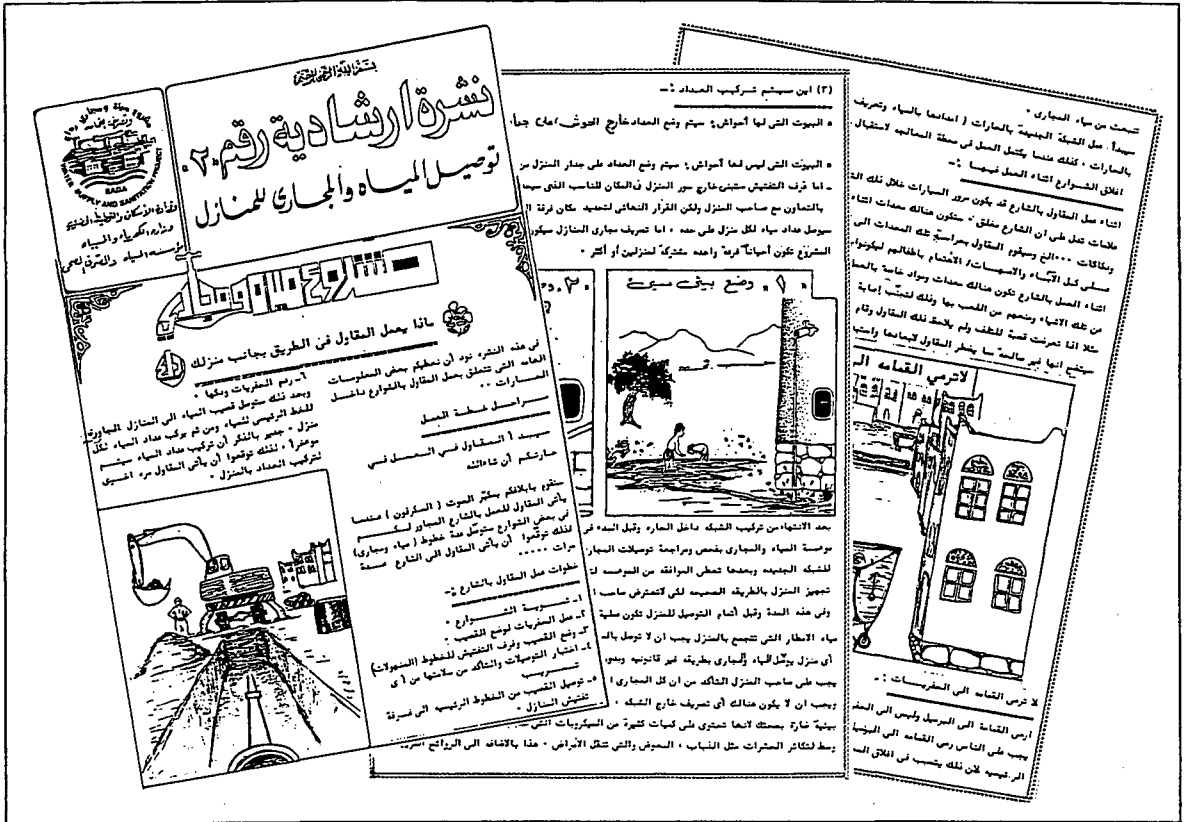 بسم الله الرحمن الرحيم
نشرة ارشادية رقم ٢٠
توصيل المياه والمجاري للمنازل
RADA
WATER SUPPLY AND SANITATION PROJECT
وزارة الكهرباء والمياه
ماذا يعمل المقاول في الطريق بجانب منزلك
في هذه النشره نود أن نعطيكم بعض المعلومات
العامه التي تتعلق بعمل المقاول بالشوارع داخل
الحارات ٠٠
مراحل خطة العمل
سيبدأ المقاول في العمل في
حارتكم أن شاءالله
سنقوم بابلاغكم بمكبر الصوت ( السكرفون ) عندما
يأتي المقاول للعمل بالشارع المجاور لكم
في بعض الشوارع ستوصل عدة خطوط ( مياه ومجارى )
لذلك توقعوا أن يأتي المقاول الى الشارع عدة
مرات ٠٠٠٠٠
خطوات عمل المقاول بالشارع :-
١- تسوية الشوارع ٠
٢- عمل الحفريات لوضع القصيب ٠
٣- وضع القصيب وغرف التفتيش للخطوط (المنهولات)
٤- اختبار التوصيلات والتأكد من سلامتها من أي
تسريب
٥- توصيل القصيب من الخطوط الرئيسيه الى غرفة
تفتيش المنازل ٠
٦- ردم الحفريات ودكها ٠
وبعد ذلك ستوصل قصيب المياه الى المنازل المجاورة
للخط الرئيسي للمياه ومن ثم يركب عداد المياه لكل
منزل ٠ جدير بالذكر أن تركيب عداد المياه سيتم
موخراً ، لذلك توقعوا أن يأتي المقاول مره اخرى
لتركيب العداد بالمنزل ٠
(٣) اين سيتم تركيب العداد :-
البيوت التي لها أحواش ؛ سيتم وضع العداد خارج الحوش
البيوت التي ليس لها أحواش ؛ سيتم وضع العداد على جدار المنزل من
- اما غرف التفتيش ستبنى خارج سور المنزل في المكان المناسب الفني
بالتعاون مع صاحب المنزل ولكن القرار النهائي لتحديد مكان غرفة
سيوصل عداد مياه لكل منزل على حده ٠ اما تصريف مجاري المنازل سيكون
المشروع تكون أحياناً غرفة واحده مشتركة لمنزلين أو أكثر ٠
١٠ وضع بيئي سيئ
٢٠
بعد الانتهاء من تركيب الشبكه داخل الحاره وقبل البدء في
موسسة المياه والمجاري بفحص ومراجعة توصيلات المجاري
للشبكه الجديده وبعدها تعطى الموافقه من الموسسه
تجهيز المنزل بالطريقه الصحيحه لكي لاتعترض صاحب
وفي هذه المدة وقبل أتمام التوصيل للمنزل تكون عملية
مياه الامطار التي تتجمع بالمنزل يجب ان لا توصل
أي منزل يوصل المياه والمجاري بطريقه غير قانونيه وبدون
يجب على صاحب المنزل التأكد من ان كل المجاري
ويجب ان لا يكون هنالك أي تصريف خارج الشبكه ٠
بيئية ضارة بصحتك لانها تحتوى على كميات كثيرة من الميكروبات التي
وسط لتكاثر الحشرات مثل الذباب ، البعوض والتي تنقل الأمراض ٠ هذا بالاضافه الى الروائح
من مياه المجارى ٠
عمل الشبكة الجديدة بالحارات ( امدادها بالمياه وتصريف
بالحارات ، كذلك عندما يكتمل العمل في محطة المعالجه لاستقبال
اغلاق الشوارع اثناء العمل فيها :-
اثناء عمل المقاول بالشارع قد يكون مرور السيارات خلال ذلك
علامات تدل على ان الشارع مغلق ٠ ستكون هنالك معدات اثناء
٠٠٠٠ الخ وسيقوم المقاول بحراسة تلك المعدات
على كل الآباء والامهات / الأهتمام باطفالهم ليكونوا
اثناء العمل بالشارع تكون هنالك معدات ومواد خاصة بالعمل
من تلك الاشياء ومنعهم من اللعب بها وذلك لتجنب إصابة
مثلا اذا تعرضت قصبة للتلف ولم يلاحظ ذلك المقاول وقام
انها غير صالحة مما يضطر المقاول
لاترمي القمامه
لا ترمي القمامه الى الحفريات :-
ارمي القمامة الى البرميل وليس الى
يجب على الناس رمي القمامه الى
الرئيسيه لان ذلك يتسبب في اغلاق